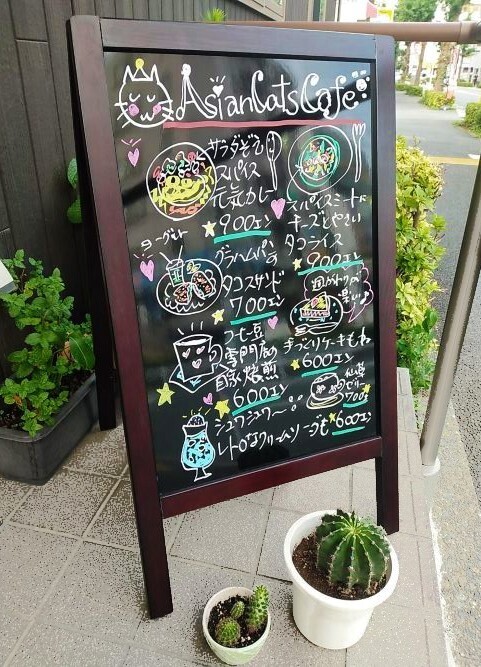 AsianCatsCafe
サラダぞえ
スパイス
元気カレー
900エン
スパイスミートに
チーズとやさい
タコライス
900エン
ヨーグルト
グラハムパンの
タコスサンド
700エン
コーヒー豆
専門店の
自家焙煎
600エン
手づくりケーキもネ
600エン
ゼリー
700エン
シュワシュワー
レトロなクリームソーダも 600エン